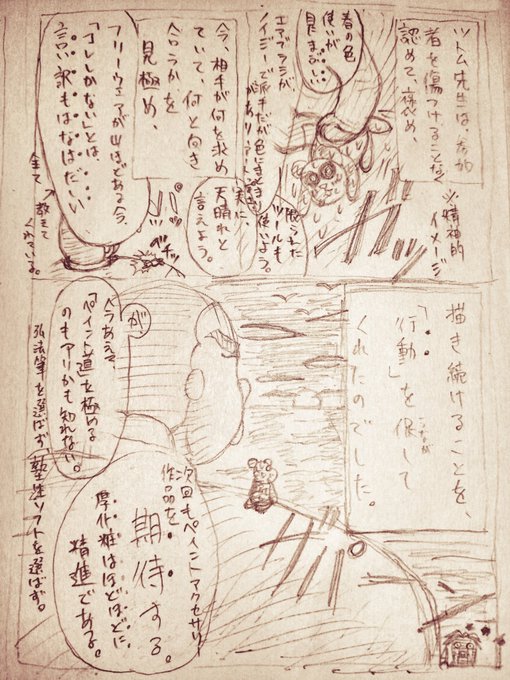 ツトム先生は、参加
者を傷つけることなく
認めて、褒め、
※精神的
イメージ
春の色
使いが
眩しい…
エアブラシが
ノイジーで派手だが色にまとまり
がありマース…
限られた
ツールも
使いよう。
実に
天晴れと
言えよう。
ガッ
今、相手が何を求め
ていて、何と向き
合うかを
見極め、
フリーウェアが山ほどある今、
「コレしかない」とは
言い訳もはなはだしい
全て
教えて
くれている。
描き続けることを、
「行動」を促して
くれたのでした。
が
「ペイント道」を極める
のもアリかも知れない。
弘法筆を選ばず塾生ソフトを選ばず。
次回もペイントアクセサリー
作品を
期待する。
厚化粧はほどほどに
精進である。